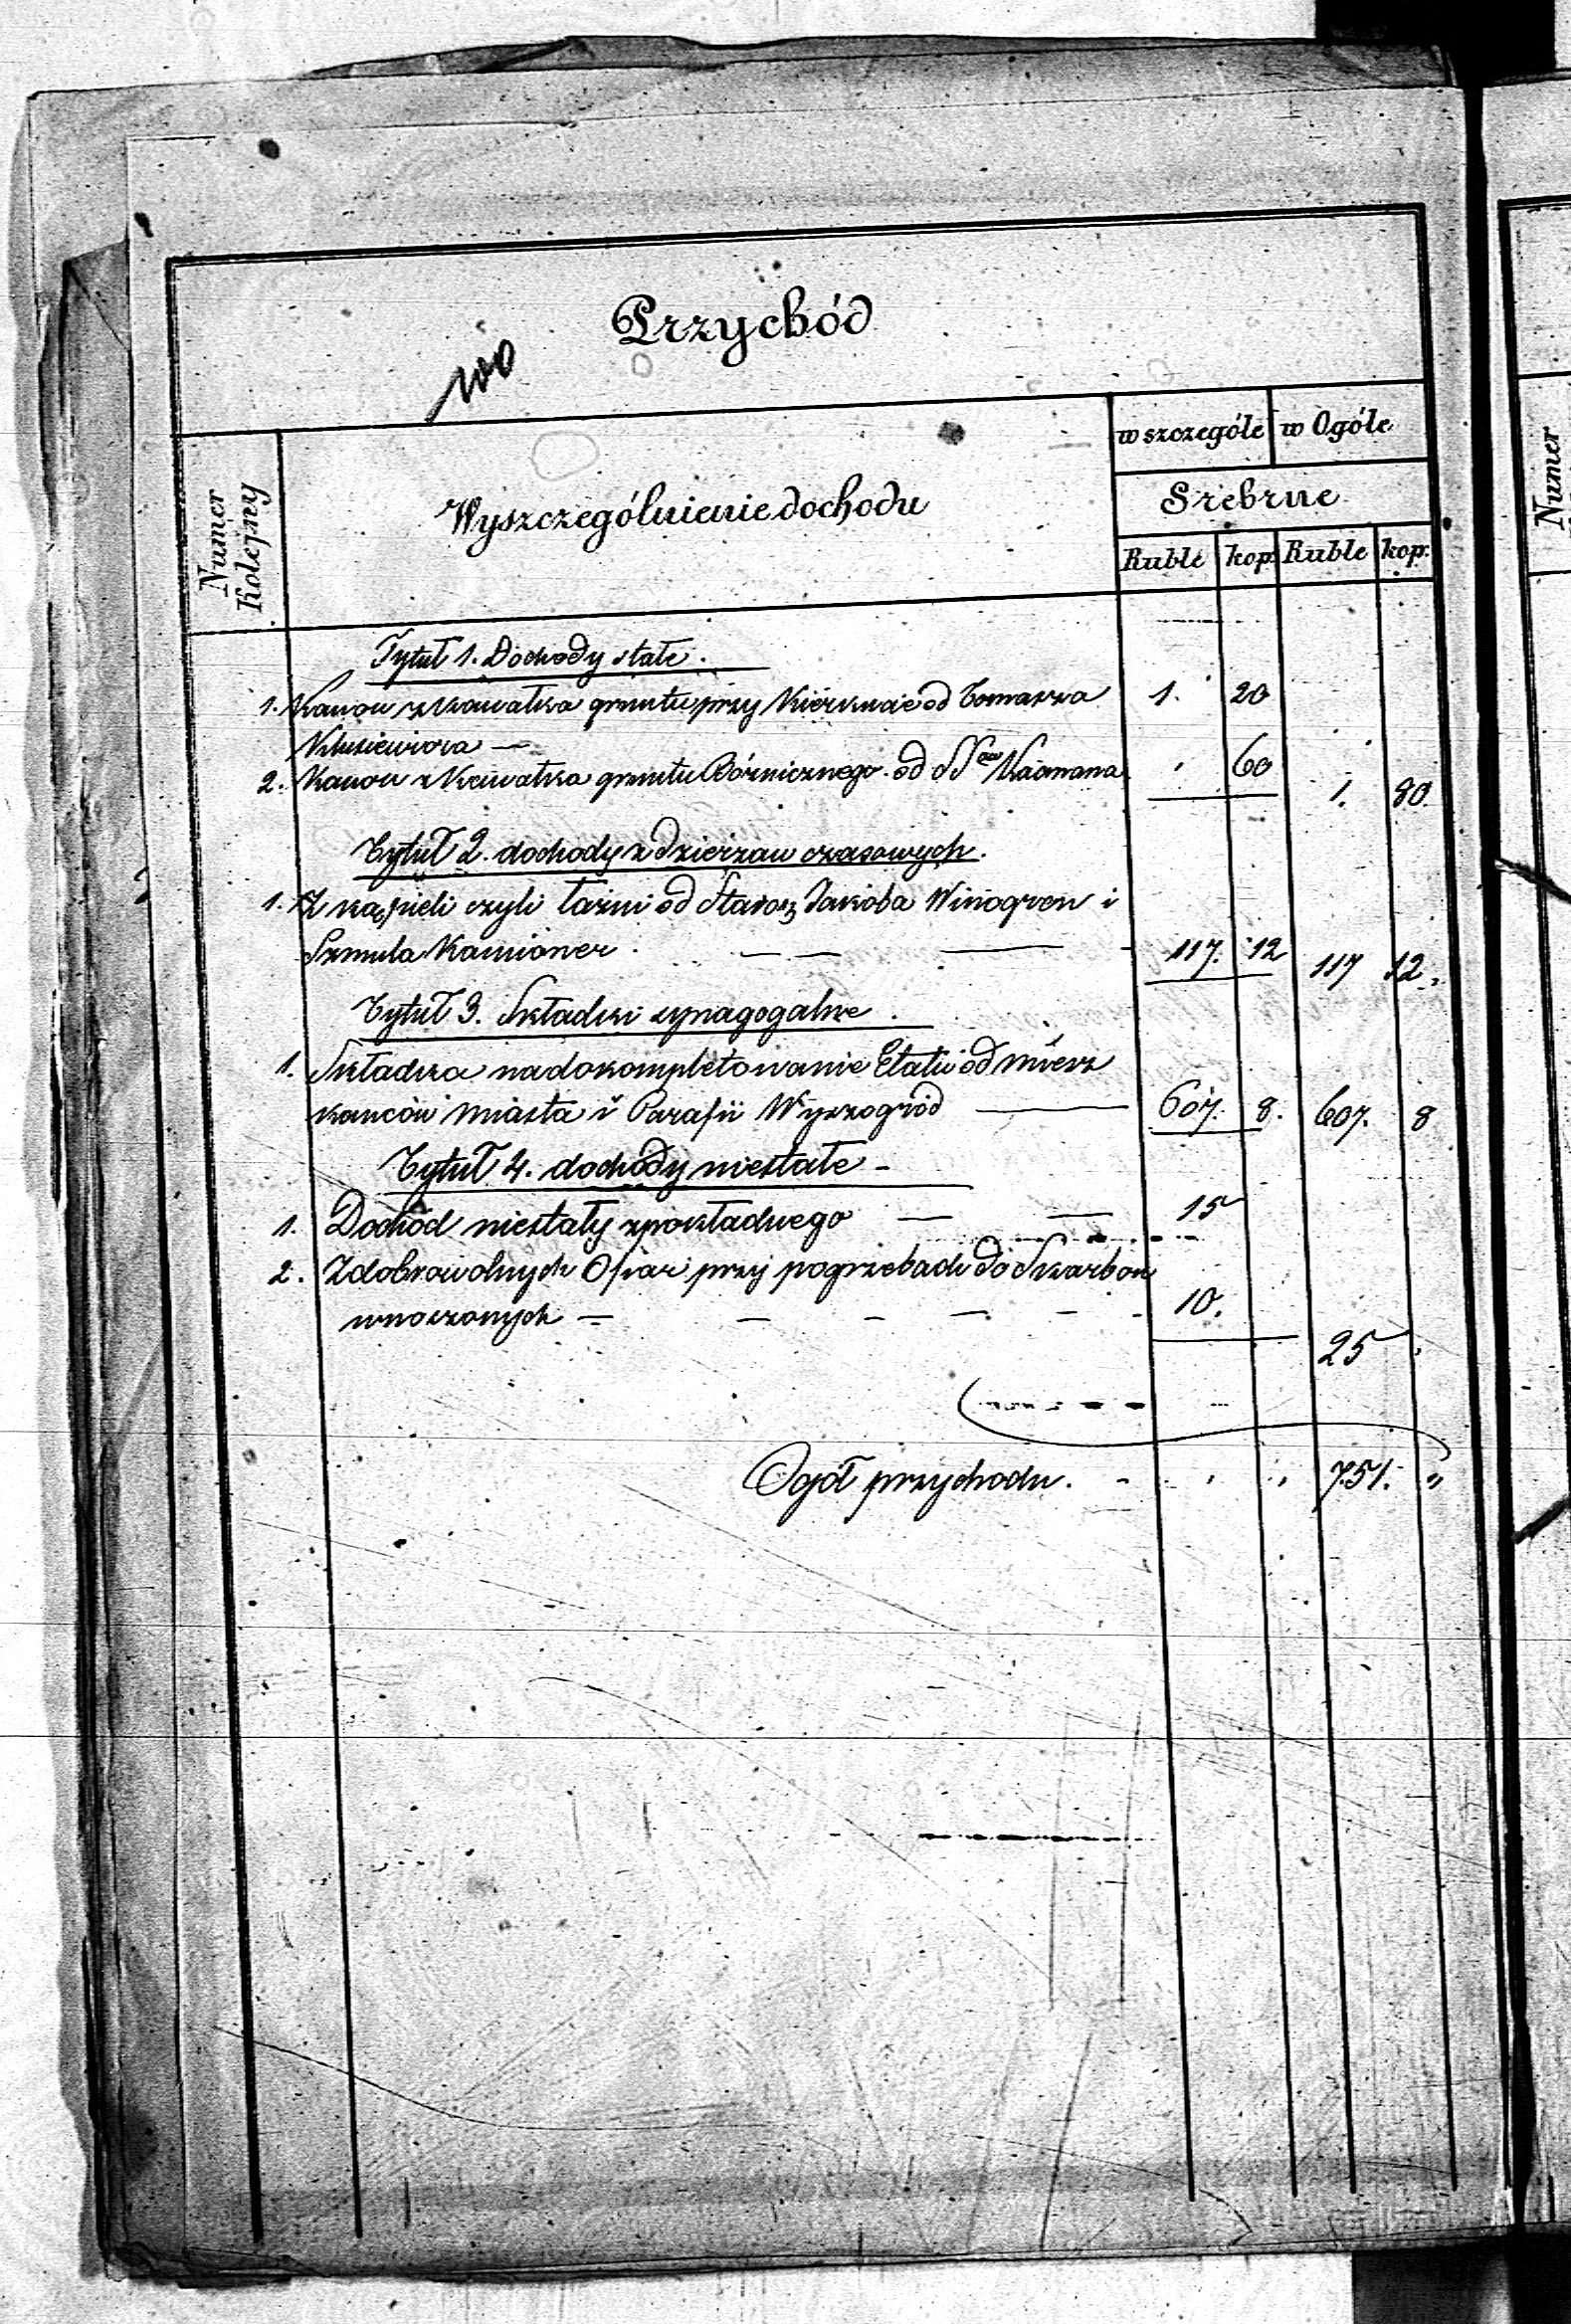 Przychód
100
w szczególe w Ogóle
Numer Kolejny
Wyszczególnienie dochodu
Srebrne
Ruble kop. Ruble kop.
Tytuł 1. Dochody stałe.
1. Kanon z kawałka gruntu przy Kierkucie od Tomasza 1. 20
2. Kanon z Kawałka gruntu Bóżnicznego od Kaomana 60 1. 80
Tytuł 2. dochody z dzierzaw czasowych.
1. Z kąpieli czyli łaźni od Staroz. Jakoba Winogron i
Szmula Kamioner. 117. 12 117 12
Tytuł 3. Składki synagogalne.
1. Składka na dokompletowanie Etatu od miesz
kańców miasta i Parafii Wyszogród 607. 8. 607. 8
Tytuł 4. dochody niestałe
1. Dochód niestały z pokładnego 15
2. Z dobrowolnych Ofiar przy pogrzebach do Skarbon
wnoszonych 10.
25
Ogół przychodu. 751. "
Numer